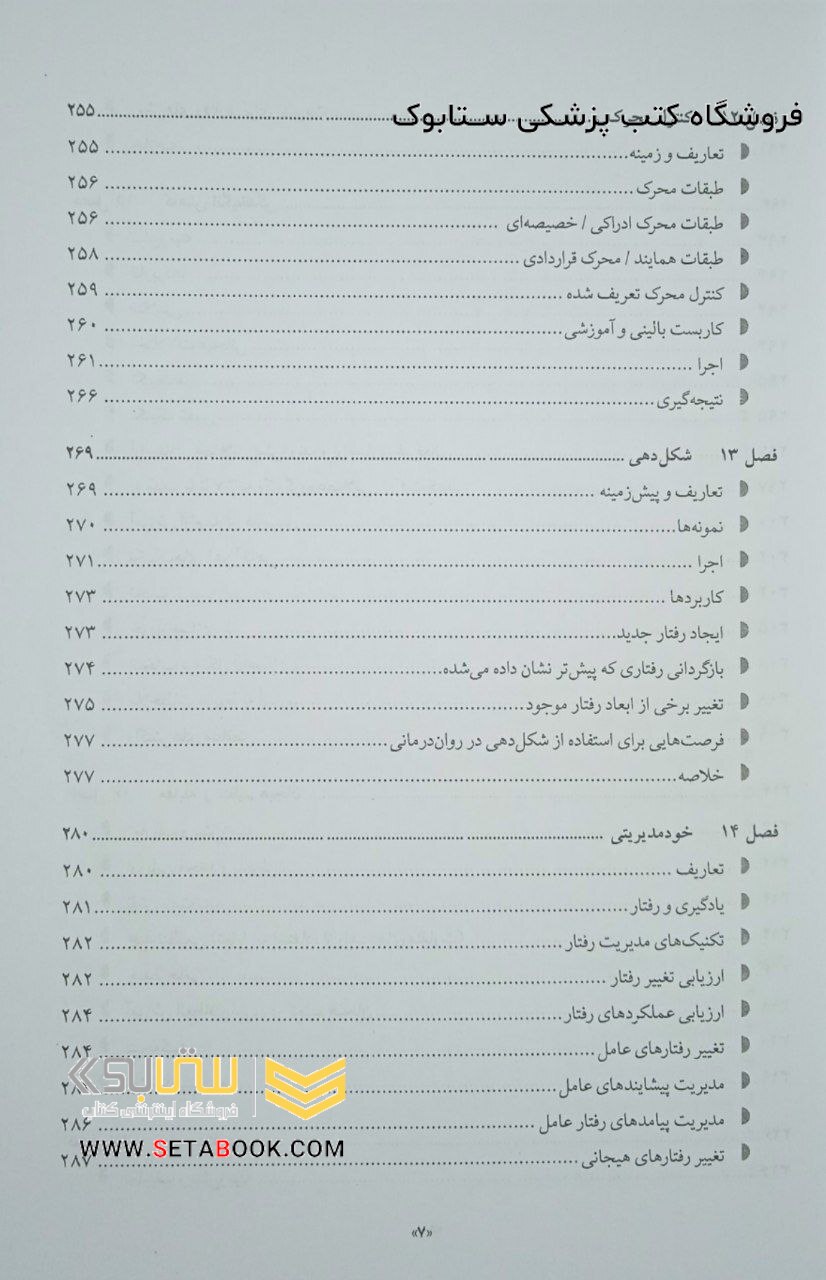 فروشگاه کتب پزشکی ستابوک
۲۵۵
تعاریف و زمینه ۲۵۵
طبقات محرک ۲۵۶
طبقات محرک ادراکی / خصیصه‌ای ۲۵۶
طبقات همایند / محرک قراردادی ۲۵۸
کنترل محرک تعریف شده ۲۵۹
کاربست بالینی و آموزشی ۲۶۰
اجرا ۲۶۱
نتیجه‌گیری ۲۶۶
فصل ۱۳ شکل‌دهی ۲۶۹
تعاریف و پیش‌زمینه ۲۶۹
نمونه‌ها ۲۷۰
اجرا ۲۷۱
کاربردها ۲۷۳
ایجاد رفتار جدید ۲۷۳
بازگردانی رفتاری که پیش‌تر نشان داده می‌شده ۲۷۴
تغییر برخی از ابعاد رفتار موجود ۲۷۵
فرصت‌هایی برای استفاده از شکل‌دهی در روان‌درمانی ۲۷۷
خلاصه ۲۷۷
فصل ۱۴ خودمدیریتی ۲۸۰
تعاریف ۲۸۰
یادگیری و رفتار ۲۸۱
تکنیک‌های مدیریت رفتار ۲۸۲
ارزیابی تغییر رفتار ۲۸۲
ارزیابی عملکردهای رفتار ۲۸۴
تغییر رفتارهای عامل ۲۸۴
مدیریت پیشایندهای عامل
مدیریت پیامدهای رفتار عامل ۲۸۶
تغییر رفتارهای هیجانی ۲۸۷
ستابوک
فروشگاه اینترنتی کتاب
WWW.SETABOOK.COM
«۷»